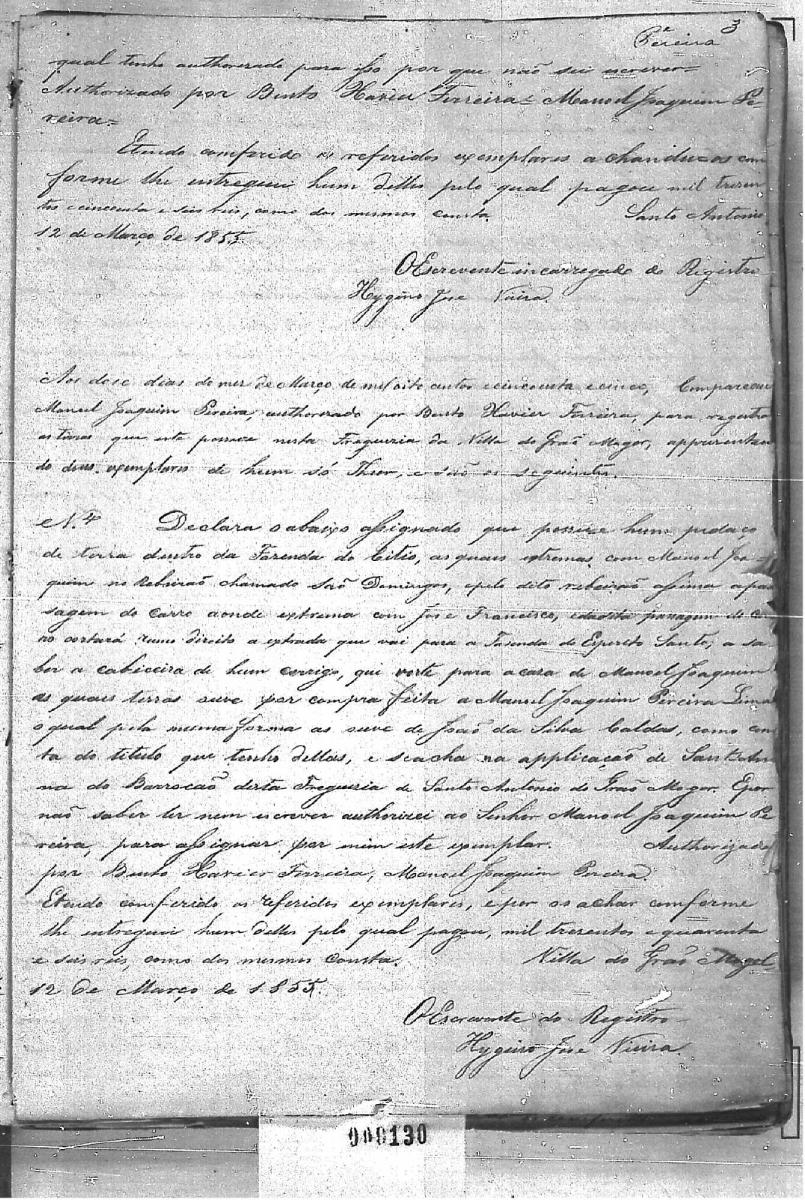 3
Pereira
qual tenho authorizado para isso por que não sei escrever=
Authorizado por Bento Xavier Ferreira= Manoel Joaquim Pe-
reira=
E tendo comferido os referidos exemplares achandu-os com
forme lhe entreguei hum delles pelo qual pagou mil trezen
tos e cincoenta e seis reis, como dos mesmos consta. Santo Antonio
12 de Março de 1855.
O Escrevente incarregado do Registro
Hygino Jose Vieira.
Aos dose dias do mes de Março de mil oito centos e cincoenta e cinco, Compareceu
Manoel Joaquim Pereira, authorizado por Bento Xavier Ferreira, para registro
as terras que este possue nesta Freguezia da Villa do Graõ Mogor, appresentan
do dous exemplares de hum só Theor, e saõ os seguintes.
N.4 Declara o abaixo assignado que possue hum pedaço
de terra dentro da Fazenda do Citio, as quais extremas com Manoel Joa-
quim no Ribeiraõ chamado Saõ Domingos, e pelo dito ribeiraõ assima a pas
sagem do Carro aonde extrema com Jose Francisco, e da dita passagem do Car
ro cortará rumo direito a extrada que vai para a Fazenda do Esperito Santo, a sa
ber a cabiceira de hum corrigo, qui verte para a casa de Manoel Joaquim
as quais terras ouve por compra feita a Manoel Joaquim Pereira Lima
o qual pela mesma forma as ouve de Joaõ da Silva Caldas, como con
ta do titulo que tenho dellas, e seacha na applicação de Sant An
na do Barrocaõ desta Freguezia de Santo Antonio do Graõ Mogor. Epor
naõ saber ler nem escrever authorizei ao Senhor Manoel Joaquim Pe
reira, para assignar por mim este exemplar. Authorizado
por Bento Xavier Ferreira, Manoel Joaquim Pereira.
E tendo comferido os referidos exemplares, e por os achar comforme
lhe entreguei hum delles pelo qual pagou, mil tresentos e quarenta
e seis reis, como dos mesmos Consta. Villa do Graõ Mogol
12 de Março de 1855.
O Escrevente do Registro
Hygino Jose Vieira.
000130